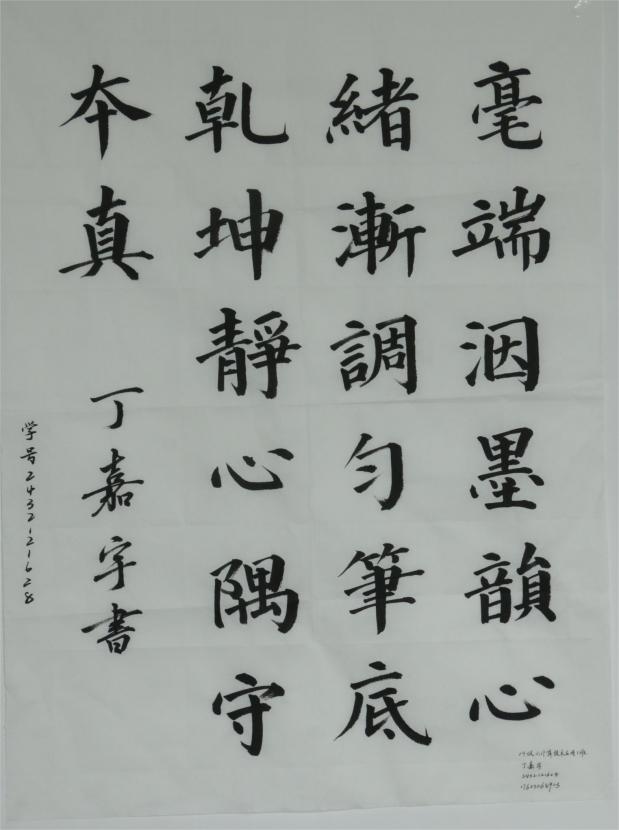 毫端洇墨韻心
緒漸調勻筆底
乹坤靜心隅守
本真
丁嘉宇書
学号2432121628
丁嘉宇